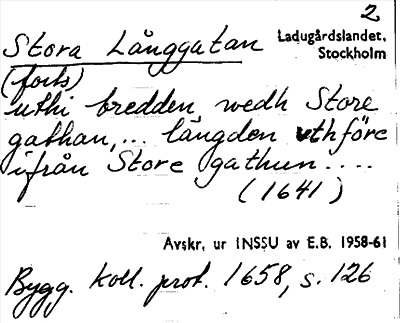 2
Stora Långgatan
Ladugårdslandet,
Stockholm
(forts)
uthi bredden wedh Store
gathan,... längden uthföre
ifrån Store gathun....
(1641)
Avskr. ur INSSU av E.B. 1958-61
Bygg. koll. prot. 1658, s. 126